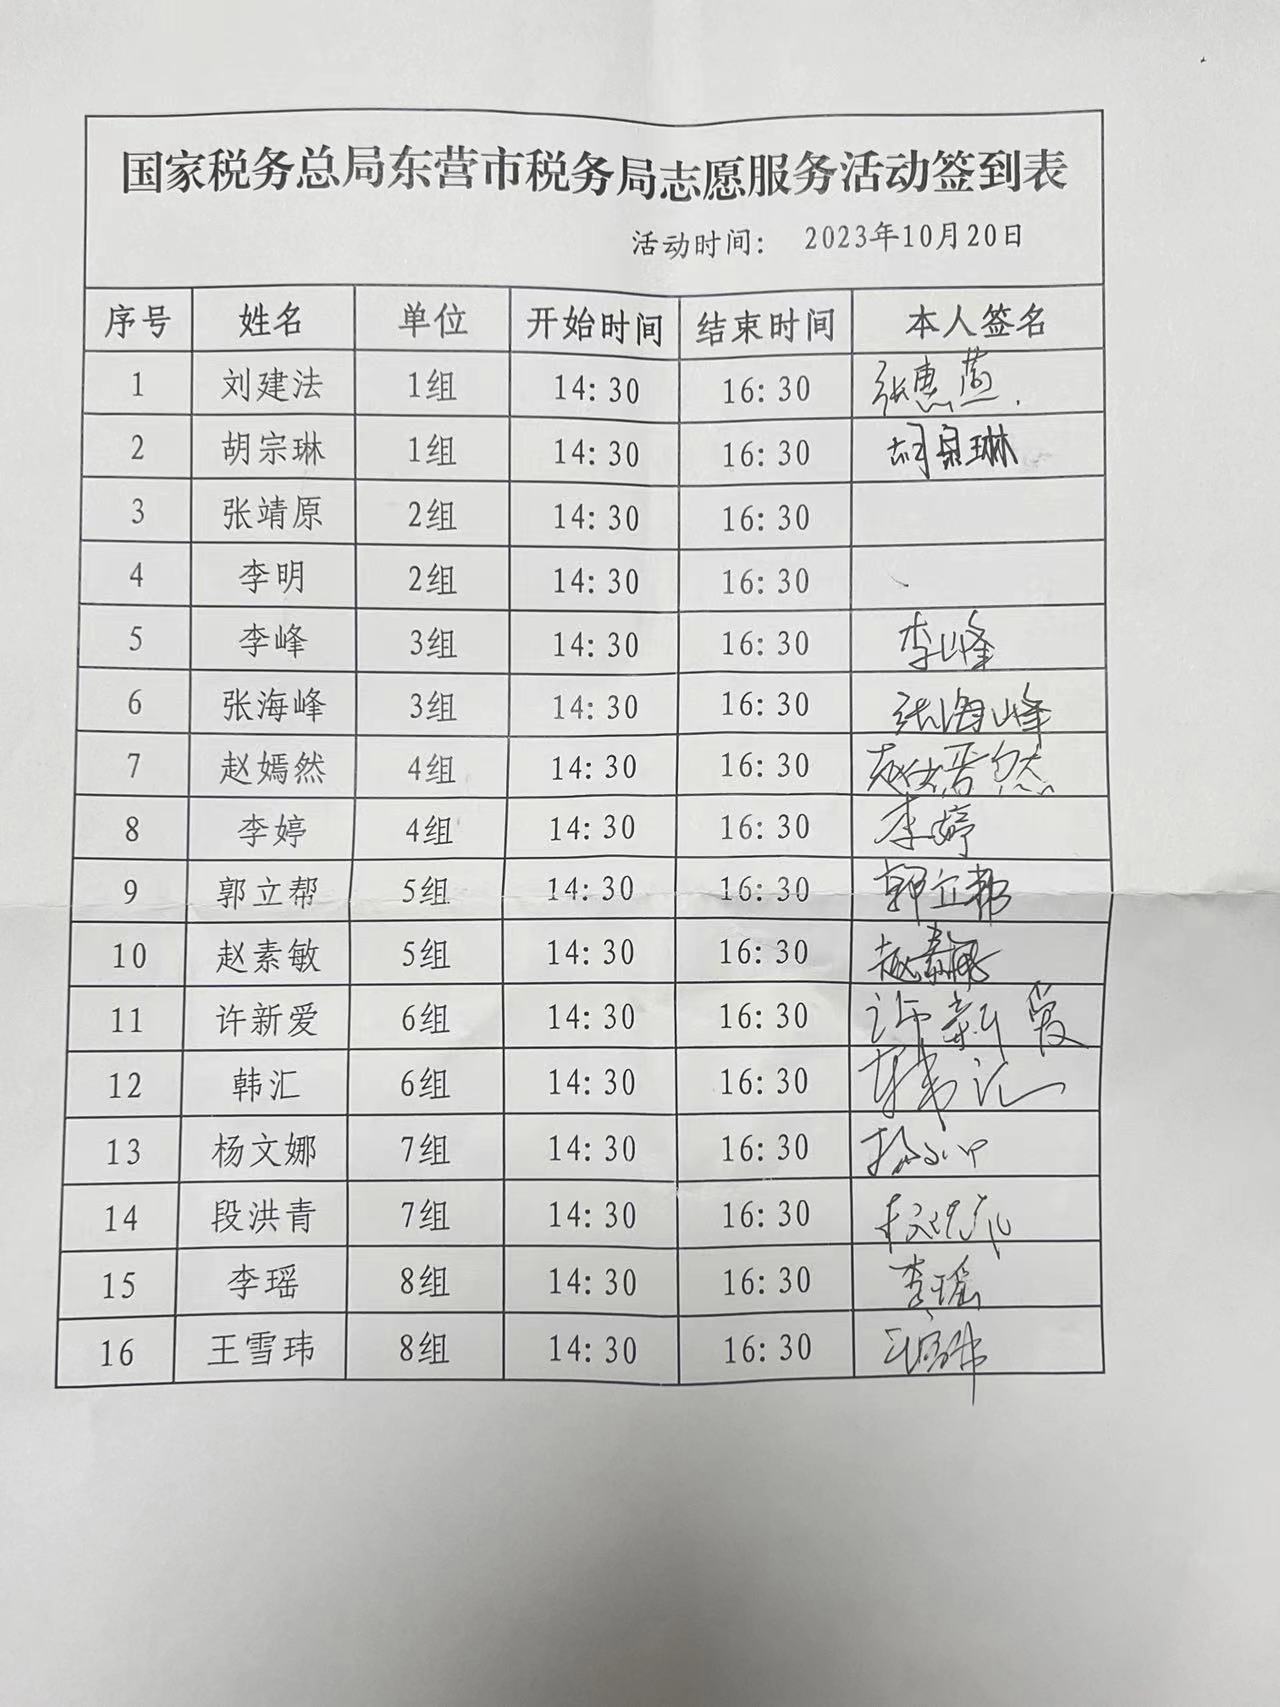 国家税务总局东营市税务局志愿服务活动签到表
活动时间： 2023年10月20日
序号 姓名 单位 开始时间 结束时间 本人签名
1 刘建法 1组 14:30 16:30 张惠
2 胡宗琳 1组 14:30 16:30 胡宗琳
3 张靖原 2组 14:30 16:30
4 李明 2组 14:30 16:30
5 李峰 3组 14:30 16:30 李峰
6 张海峰 3组 14:30 16:30 张海峰
7 赵嫣然 4组 14:30 16:30 赵嫣然
8 李婷 4组 14:30 16:30 李婷
9 郭立帮 5组 14:30 16:30 郭立帮
10 赵素敏 5组 14:30 16:30 赵素敏
11 许新爱 6组 14:30 16:30 许新爱
12 韩汇 6组 14:30 16:30 韩汇
13 杨文娜 7组 14:30 16:30
14 段洪青 7组 14:30 16:30
15 李瑶 8组 14:30 16:30 李瑶
16 王雪玮 8组 14:30 16:30 王雪玮